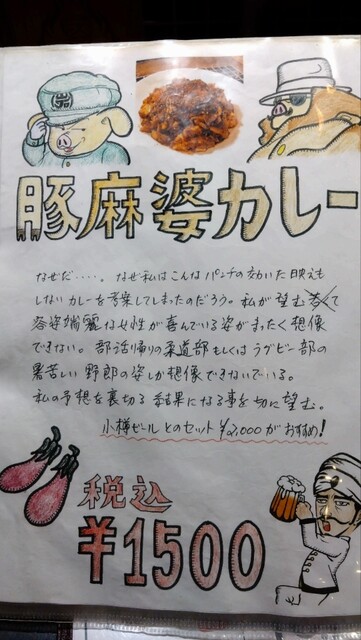 豚麻婆カレー
なぜだ‥‥。なぜ私はこんなパンチの効いた映えも
しないカレーを考案してしまったのだろう。私が望む若くて
容姿端麗な女性が喜んでいる姿がまったく想像
できない。部活帰りの柔道部もしくはラグビー部の
暑苦しい野郎の姿しか想像できないでいる。
私の予想を裏切る結果になる事を切に望む。
小樽ビールとのセット¥2,000がおすすめ!
税込
¥1500